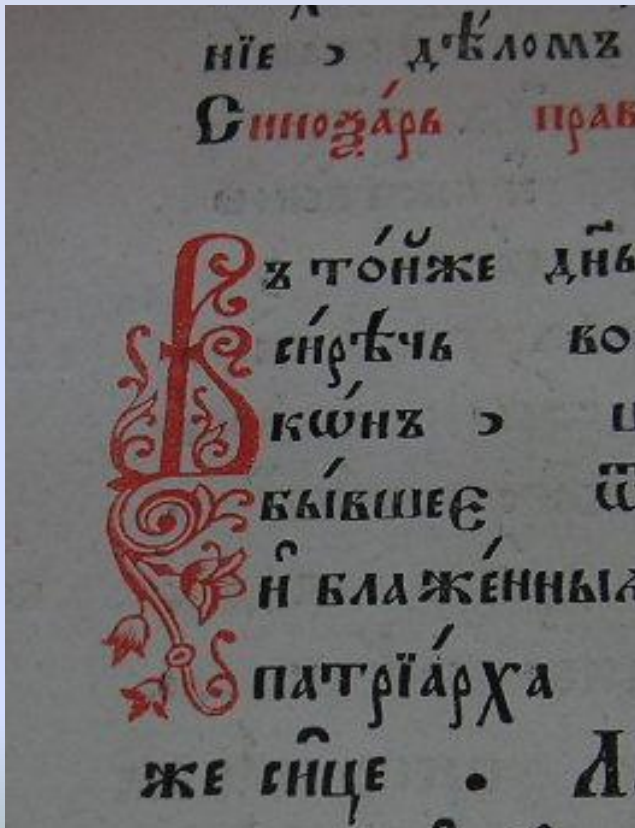 нїе , дѣ́ломъ
Синоѯа́рь прав
Въ то́йже дн҃ь
си́рѣчь во
кѡ́нъ ,
бы́вшеє ѿ
и҆ блаже́нныѧ
патрїа́рха
же си҆це .